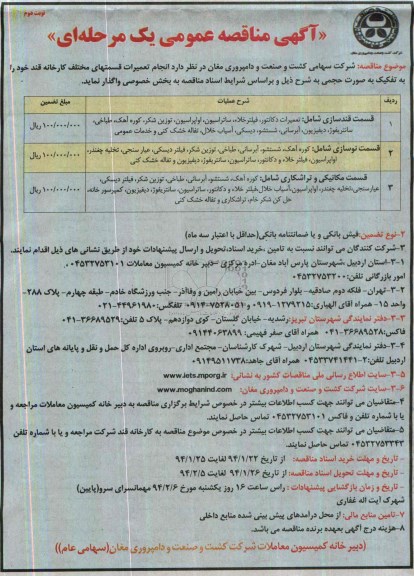 نوبت دوم
«آگهی مناقصه عمومی یک مرحله‌ای»
موضوع مناقصه: شرکت سهامی کشت و صنعت و دامپروری مغان در نظر دارد انجام تعمیرات قسمتهای مختلف کارخانه قند خود را
به تفکیک به صورت حجمی به شرح ذیل و براساس شرایط اسناد مناقصه به بخش خصوصی واگذار نماید.
ردیف شرح عملیات مبلغ تضمین
۱ قسمت قندسازی شامل: تعمیرات دکانتور، فیلترخلاء، ساتراسیون، اواپراسیون، توزین شکر، کوره آهک، طباخی، سانتریفوژ، دیفیزیون، آبرسانی، شستشو، دیسکی، آسیاب خلال، تفاله خشک کنی و خدمات عمومی ۱۰۰/۰۰۰/۰۰۰ ریال
۲ قسمت نوسازی شامل: کوره آهک، شستشو، آبرسانی، طباخی، توزین شکر، فیلتر دیسکی، عیارسنجی، تخلیه چغندر، اواپراسیون، فیلتر خلاء و دکانتور، ساتراسیون، سانتریفوژ، دیفیزیون و تفاله خشک کنی ۱۰۰/۰۰۰/۰۰۰ ریال
۳ قسمت مکانیکی و تراشکاری شامل: کوره آهک، شستشو، آبرسانی، طباخی، توزین شکر، فیلتر دیسکی، عیارسنجی، تخلیه چغندر، اواپراسیون، آسیاب خلال، فیلتر خلاء و دکانتور، ساتراسیون، سانتریفوژ، دیفیزیون، کمپرسور خانه، حل کن شکر خام، تراشکاری و تفاله خشک کنی ۱۰۰/۰۰۰/۰۰۰ ریال
۲-نوع تضمین: فیش بانکی و یا ضمانتنامه بانکی (حداقل با اعتبار سه ماه)
۳-شرکت کنندگان می توانند نسبت به تامین ،خرید اسناد،تحویل و ارسال پیشنهادات خود از طریق نشانی های ذیل اقدام نمایند.
۳-۱-استان اردبیل ،شهرستان پارس آباد مغان-ادره مرکزی -دبیر خانه کمیسیون معاملات ۰۴۵۳۲۷۵۳۱۰۱ ،
امور بازرگانی تلفن: ۰۴۵۳۲۷۵۳۲۰۰
۳-۲-تهران- فلکه دوم صادقیه- بلوار فردوس- بین خیابان رامین و وفاآذر- جنب ورزشگاه خادم- طبقه چهارم- پلاک ۲۸۸-
واحد ۱۵- همراه آقای الهیاری: ۰۹۱۹۰۱۲۷۹۲۱۵ و ۰۹۱۴۰۷۵۲۸۰۵۱ تلفگس: ۰۲۱-۴۴۹۶۱۹۸۰
۳-۳-دفتر نمایندگی شهرستان تبریز:رشدیه- خیابان گلستان- کوی دوازدهم- پلاک ۵ تلفن: ۰۴۱-۳۶۶۸۹۵۲۹
فاکس: ۰۴۱-۳۶۶۸۹۵۲۸ همراه آقای صفر فهیمی: ۰۹۱۴۴۰۶۳۸۹۹
۳-۴-دفتر نمایندگی شهرستان اردبیل- شهرک کارشناسان- مجتمع اداری-روبروی اداره کل حمل و نقل و پایانه های استان
اردبیل تلفن: ۲-۰۴۵۳۳۷۴۱۴۴۱ همراه آقای جاهد: ۰۹۱۴۹۵۱۱۷۳۸
۳-۵-سایت اطلاع رسانی ملی مناقصات کشور به نشانی: www.iets.mporg.ir
۳-۶-سایت شرکت کشت و صنعت و دامپروری مغان: www.moghanind.com
۴-متقاضیان می توانند جهت کسب اطلاعات بیشتر در خصوص شرایط برگزاری مناقصه به دبیر خانه کمیسیون معاملات مراجعه و
یا با شماره تلفن و فاکس ۰۴۵۳۲۷۵۳۱۰۱ تماس حاصل نمایند.
۵-متقاضیان می توانند جهت کسب اطلاعات بیشتر در خصوص موضوع مناقصه به کارخانه قند شرکت مراجعه و یا با شماره تلفن
۰۴۵۳۲۷۵۳۴۴۳ تماس حاصل نمایند.
- تاریخ و مهلت خرید اسناد مناقصه: از تاریخ ۹۴/۱/۲۲ لغایت ۹۴/۱/۲۵
- تاریخ و مهلت تحویل اسناد مناقصه: از تاریخ ۹۴/۱/۲۶ لغایت ۹۴/۲/۵
- تاریخ و زمان بازگشایی پیشنهادات : راس ساعت ۱۶ روز یکشنبه مورخ ۹۴/۲/۶ مهمانسرای سرو(پایین)
شهرک آیت اله غفاری
۷-تامین منابع مالی: از محل درآمدهای پیش بینی شده منابع داخلی
۸-هزینه درج آگهی بعهده برنده مناقصه می باشد.
(دبیر خانه کمیسیون معاملات شرکت کشت و صنعت و دامپروری مغان(سهامی عام))